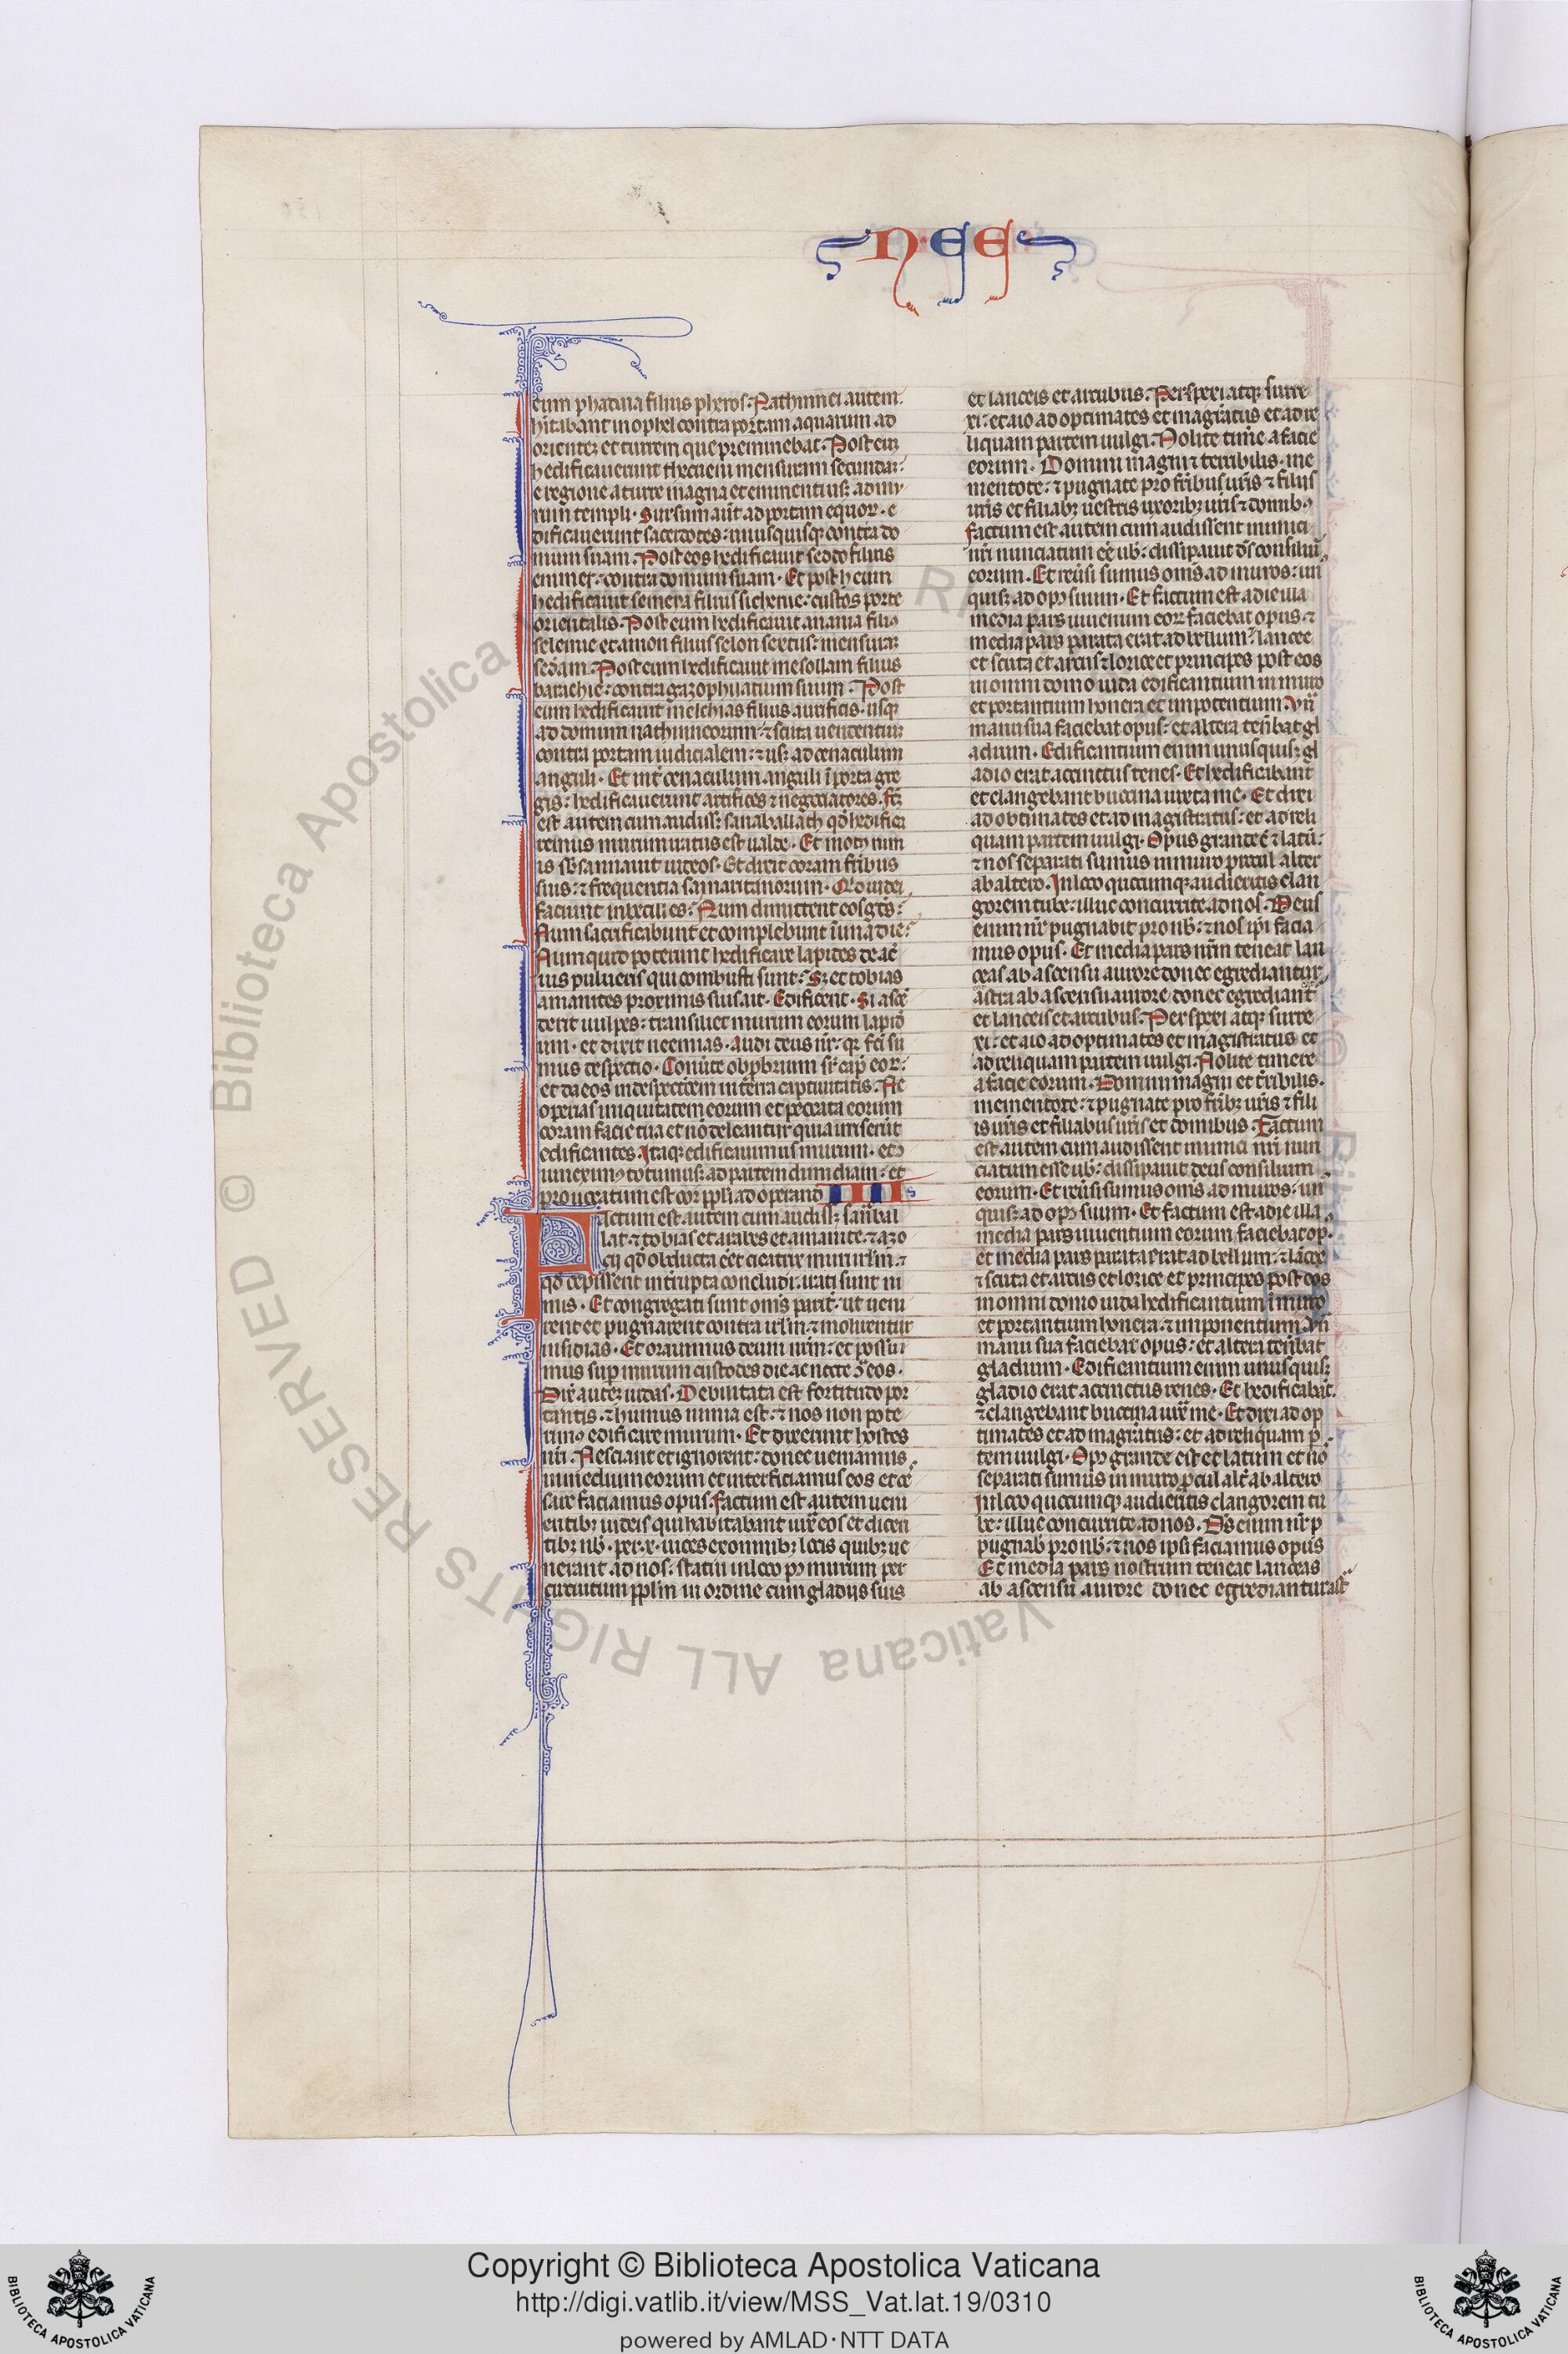 NEE
eum phadaia filius pheros. Nathinnei autem
hitabant in ophel contra portam aquarum ad
orientez et turrem que preminebat. Post eu
hedificauerunt thecueni mensuram secundaz:
e regione a turre magna et eminenti usqz ad mu
rum templi. Sursum aut ad portam equor. e
dificauerunt sacerdotes: unusquisqz contra do
mum suam. Post eos hedificauit seddo filius
emmer: contra domum suam. Et post h eum
hedificauit semeia filius sichenie: custos porte
orientalis. Post eum hedificauit anania filiꝰ
selemie et anon filius selon sextus: mensuraz
scdam. Post eum hedificauit mesollam filius
barachie: contra gazophilatium suum. Post
eum hedificauit melchias filius aurificis. usqz
ad domum nathinneorum: ⁊ scuta uendentiuz
contra portam iudicialem: ⁊ usqz ad cenaculum
anguli. Et int cenaculum anguli i porta gre
gis: hedificauerunt artifices ⁊ negociatores. fcm
est autem cum audiss; sanaballath qd hedifica
remus murum iratus est ualde. Et motꝰ nim
is sbsannauit iudeos. Et dixit coram fribus
suis: ⁊ frequentia samaritanorum. Qid iudei
faciunt inbecilles: Num dimittent eos gtes:
Num sacrificabunt et complebunt i una die:
Num quid poterunt hedificare lapides de ac
uis pulueris qui combusti sunt: S; et tobias
amanites proximus suis ait. Edificent. Si asce
derit uulpes: transiliet murum eorum lapid
um. et dixit neemias. Audi deus nr: qr fci su
mus despectio. Conute obpbrium sr cap eor:
et da eos in despectionem in terra captiuitatis. Ne
operias iniquitatem eorum et peccata eorum
coram facie tua et no deleantur quia irriserut
edificantes. Itaqz edificauimus murum. et
iunximꝰ totum usqz ad partem dimidiam: et
prouocatum est cor ppli ad operand IIII s
Factum est autem cum audiss; sanabal
lat ⁊ tobias et arabes et amanite ⁊ azo
cij qd obducta eet cicatrix muri irlm ⁊
qd cepissent intrupta concludi. irati sunt ni
mis. Et congregati sunt oms parit. ut ueni
rent et pugnarent contra irlm ⁊ molirentur
insidias. Et orauimus deum nrm: et possui
mus sup murum custodes die ac nocte 3 eos.
Dix autez iudas. Debilitata est fortitudo por
tantis. ⁊ humus nimia est: ⁊ nos non pote
rimꝰ edificare murum. Et dixerunt hostes
nri. Nesciant et ignorent: donec ueniamus
in medium eorum et interficiamus eos et ce
sare faciamus opus. Factum est autem ueni
entibz iudeis qui habitabant iux eos et dicen
tibz nb. per .x. uices ex omnibz locis quibz ue
nerant ad nos: statui in loco pꝰ murum per
circuitum pplm in ordine cum gladijs suis
et lanceis et arcubus. Perspexi atqz surre
xi: et aio ad optimates et magratus et ad re
liquam partem uulgi. Nolite time a facie
eorum. Domini magni ⁊ terribilis. me
mentote: ⁊ pugnate pro fribus uris ⁊ filijs
uris et filiabz uestris uxoribz uris ⁊ domibꝰ
Factum est autem cum audissent inimici
nri nunciatum ee nb: dissipauit ds consiliu
eorum. Et reusi sumus oms ad muros: un
quisqz ad opꝰ suum. Et factum est a die illa
media pars iuuenum eorz faciebat opus: ⁊
media pars parata erat ad bellum: ⁊ lancee
et scuta et arcus ⁊ lorice et principes post eos
in omni domo iuda edificantium in muro
et portantium honera et inponentium: un
manu sua faciebat opus: et altera tenbat gl
adium. Edificantium enim unusquisqz gl
adio erat accinctus renes. Et hedificabant
et clangebant buccina iuxta me. Et dixi
ad obtimates et ad magistratus: et ad reli
quam partem uulgi. Opus grande e ⁊ latu:
⁊ nos separati sumus in muro procul alter
ab altero. In loco quocumqz audieritis clan
gorem tube: illuc concurrite ad nos. Deus
enim nr pugnabit pro nb: ⁊ nos ipi facia
mus opus. Et media pars nrm teneat lan
ceas ab ascensu aurore donec egrediantur
astra ab ascensu aurore donec egrediant
et lanceis et arcubus. Perspexi atqz surre
xi: et aio ad optimates et magistratus et
ad reliquam partem uulgi. Nolite timere
a facie eorum. Domini magni et tribilis.
mementote: ⁊ pugnate pro fribz uris ⁊ fili
is uris et filiabus uris et domibus. Factum
est autem cum audissent inimici nri nun
ciatum esse nb: dissipauit deus consilium
eorum. Et reusi sumus oms ad muros: un
quisqz ad opꝰ suum. Et factum est a die illa
media pars iuuentum eorum faciebat op.
et media pars parata erat ad bellum: ⁊ lacee
⁊ scuta et arcus et lorice et principes post eos
in omni domo iuda hedificantium i muro
et portantium honera: ⁊ inponentum. un
manu sua faciebat opus: et altera tenbat
gladium. Edificantium enim unusquisqz
gladio erat accinctus renes. Et hedificabat.
⁊ clangebant buccina iux me. Et dixi ad op
timates et ad magratus: et ad reliquam p
tem uulgi. Opꝰ grande est et latum et no
separati sumus in muro pcul alt ab altero
In loco quocumqz audieritis clangorem tu
be: illuc concurrite ad nos. Ds enim nr p
pugnab pro nb: ⁊ nos ipsi faciamus opus
Et media pars nostrum teneat lanceas
ab ascensu aurore donec egrediantur ast
Biblioteca Apostolica Vaticana ALL RIGHTS RESERVED ©
Copyright © Biblioteca Apostolica Vaticana
http://digi.vatlib.it/view/MSS_Vat.lat.19/0310
powered by AMLAD·NTT DATA
BIBLIOTECA APOSTOLICA VATICANA
BIBLIOTECA APOSTOLICA VATICANA